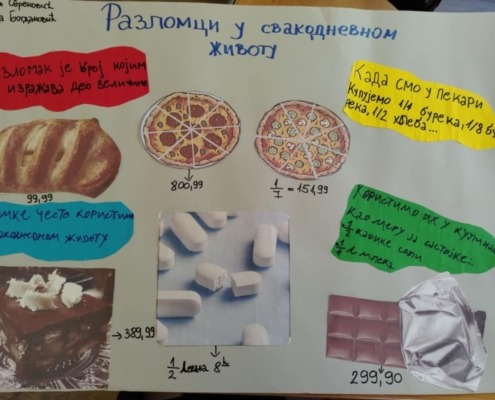 Обреновић
Богдановић
Разломци у свакодневном
животу
зломак је број којим
изражава део величине
Када смо у пекари
Купујемо 1/4 бурека, 1/8 бу
река, 1/2 хлеба...
99,99
800,99
1/7 = 151,99
често користимо
животу
Користимо их у кухињи
Као меру за састојке...
1/2 кашике соли
млека
389,99
1/2 8 h
299,90